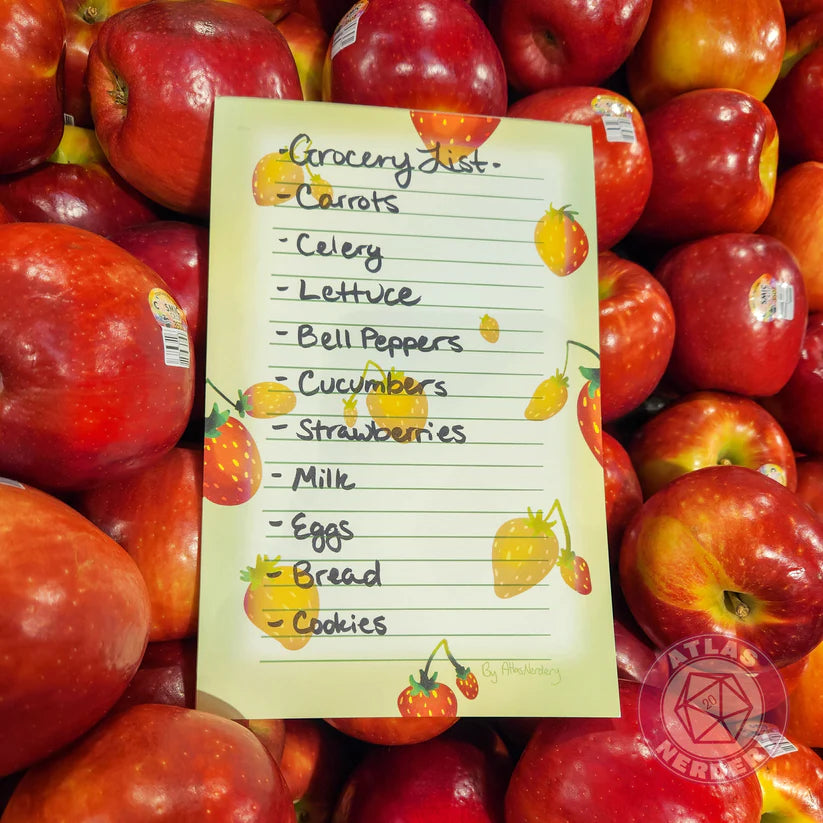 -Grocery List-
- Carrots
- Celery
- Lettuce
- Bell Peppers
- Cucumbers
- Strawberries
- Milk
- Eggs
- Bread
- Cookies
By AtlasNerderg
ATLAS
20
NERDERY